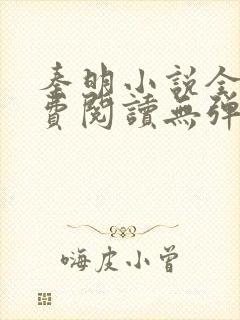 秦明小说全
費閱讀無彈
嗨皮小曾